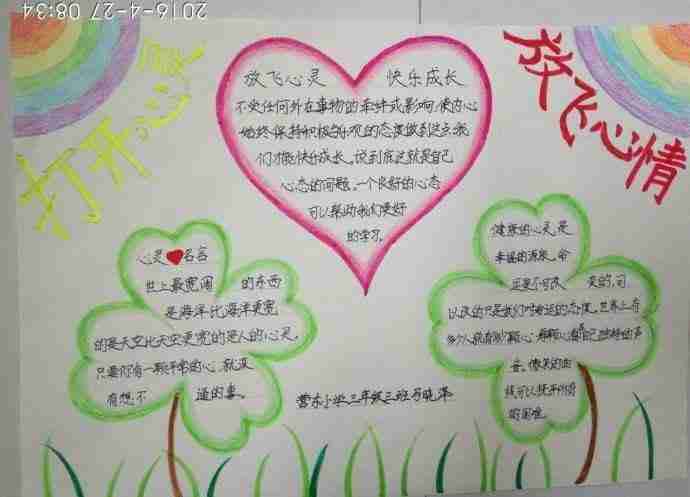 2016-4-27 08:34
打开心灵
放飞心情
放飞心灵 快乐成长
不受任何外在事物的牵绊或影响,使内心
始终保持积极乐观的态度做到这点我
们才能快乐成长,说到底这就是自己
心态的问题,一个良好的心态
可以帮助我们更好
的学习。
心灵 名言
世上最宽阔 的东西
是海洋比海洋更宽
的是天空比天空更宽的是人的心灵。
只要你有一颗平常的心,就没
有想不 通的事。
健康的心灵,是
幸福的源泉,命
运是不可改 变的,可
以改的只是我们对命运的态度,世界上有
多少人就有多少颗心,每颗心有自己独特的声
音,微笑的曲
线可以抚平所有
的困难
营东小学三年级三班